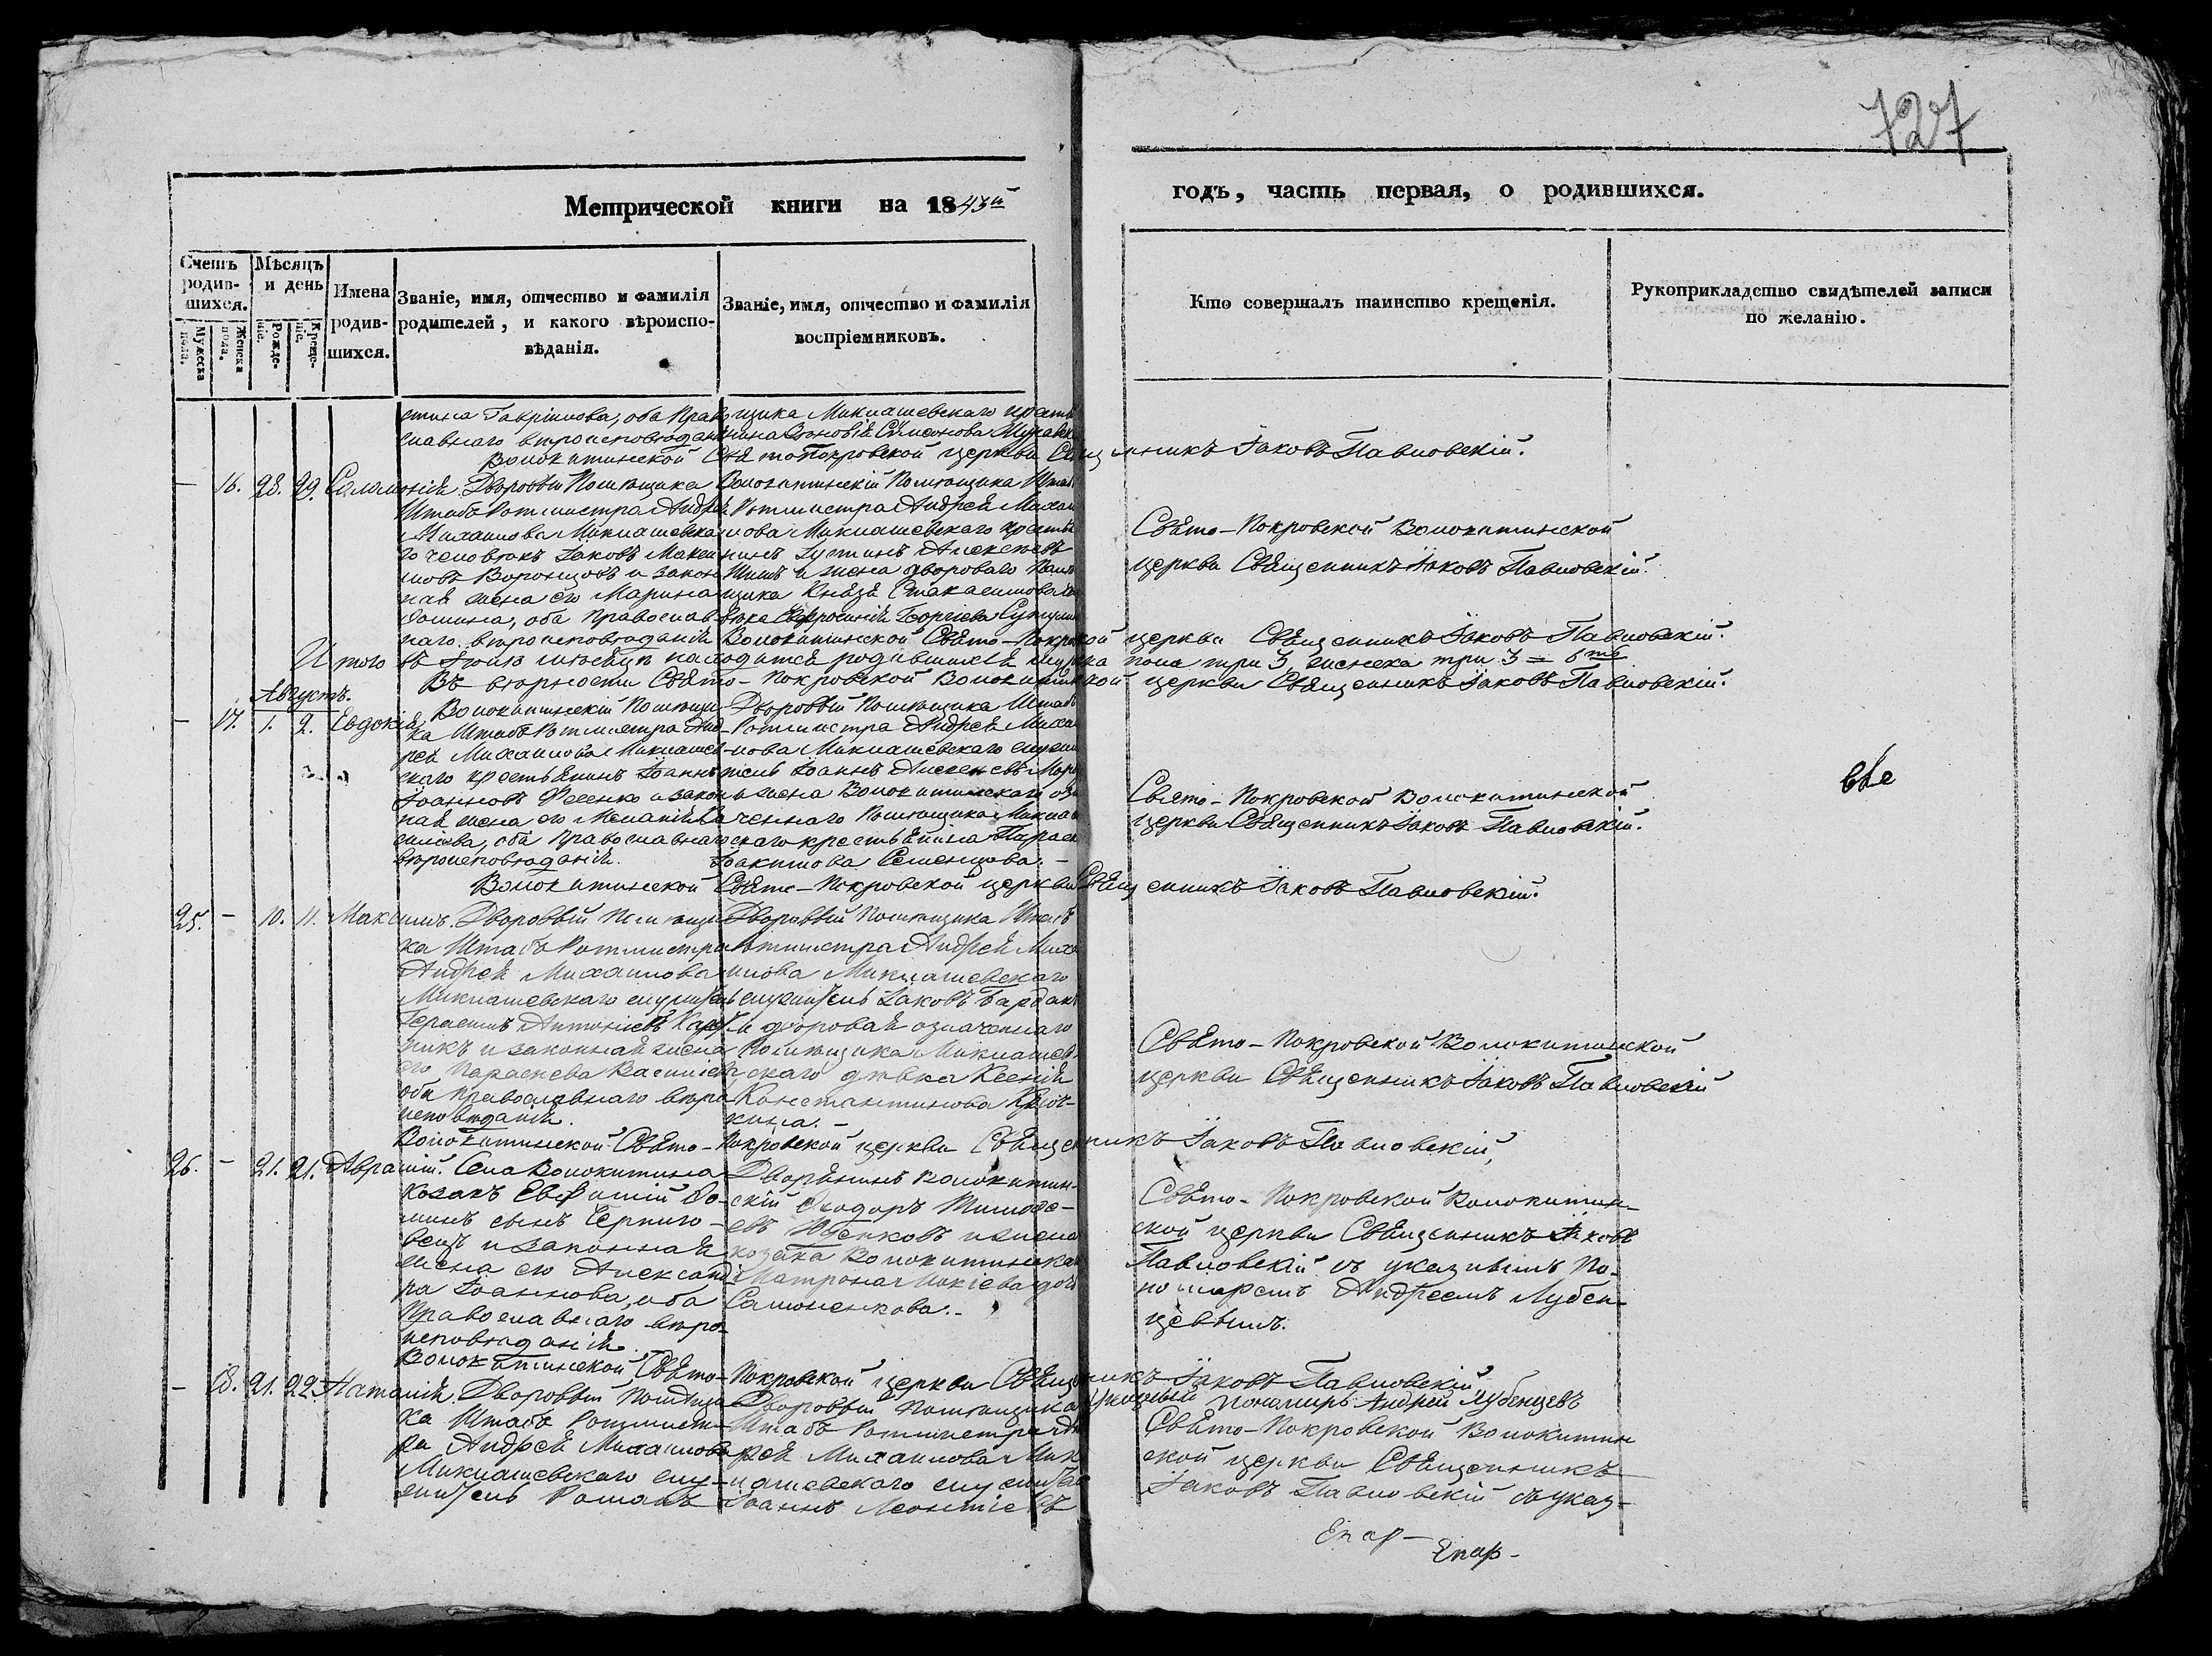 727
Метрической книги на 1843й
годъ, часть первая, о родившихся.
Счетъ родив-шихся.
Мужеска пола.
Женска пола.
Мѣсяцъ и день
Рожде-нiе.
Креще-нiе.
Имена
родив-
шихся.
Званiе, имя, отчество и фамилiя
родителей, и какого вѣроиспо-
вѣданiя.
Званiе, имя, отчество и фамилiя
воспрiемниковъ.
Кто совершалъ таинство крещенiя.
Рукоприкладство свидѣтелей записи
по желанiю.
стина Гаврiилова, оба Право
славнаго вѣроисповѣданi
щика Миклашевскаго крестья
Волокитинской Свято Покровской церкви Священникъ Iаковъ Павловскiй.
— 16. 28. 29. Саломонiя
Дворовый Помѣщика
Штабъ Ротмистра Андрея
Михаилова Миклашевска
го человѣкъ Iаковъ Макси
мовъ Воронцовъ и закон
ная жена его Марина
оба Православ
наго вѣроисповѣданiя
Волокитинскiй Помѣщика Штаб
Ротмистра Андрея Михаи
лова Миклашевскаго крестья
нинъ Алексѣевъ
и жена двороваго Помѣ
щика Князя
Георгiева
Свято-Покровской Волокитинской
церкви Священникъ Iаковъ Павловскiй.
Волокитинской Свято-Покровской церкви Священникъ Iаковъ Павловскiй.
Итого въ Iюлѣ мѣсяцѣ находится родившихся мужеска пола три 3, женска три 3 = 6ть
Въ вѣрности Свято-Покровской Волокитинской церкви Священникъ Iаковъ Павловскiй.
Августъ.
— 17. 1. 2. Евдокiя
Волокитинскiй Помѣщи
ка Штабъ Ротмистра Анд
рея Михаилова Миклашев
скаго крестьянинъ Iоаннъ
Iоанновъ Фесенко и закон
ная жена его Меланiя Ва
силiева, оба Православнаго
вѣроисповѣданiя.
Дворовый Помѣщика Штабъ
Ротмистра Андрея Михаи
лова Миклашевскаго служи
тель Iоаннъ Алексѣевъ
и жена Волокитинскаго озна
ченнаго Помѣщика Миклаш
скаго крестьянина Параск
Iоакимова Семенцова.—
Свято-Покровской Волокитинской
церкви Священникъ Iаковъ Павловскiй.
Волокитинской Свято-Покровской церкви Священникъ Iаковъ Павловскiй.
25. — 10. 11. Максимъ.
Дворовый Помѣщи
ка Штабъ Ротмистра
Андрея Михаилова
Миклашевскаго служитель
Герасимъ Антонiевъ
и законная жена
его Параскева Василiева,
оба Православнаго вѣро
исповѣданiя.
Дворовый Помѣщика Штабъ
Ротмистра Андрея Миха
илова Миклашевскаго
служитель Iаковъ
и дворовая означеннаго
Помѣщика Миклашев-
скаго дѣвка Ксенiя
Константинова
Свято-Покровской Волокитинской
церкви Священникъ Iаковъ Павловскiй
Волокитинской Свято-Покровской церкви Священникъ Iаковъ Павловскiй,
26. — 21. 21. Аврамiй.
Села Волокитина
козакъ Евфимiй Фо-
минъ сынъ Черниго-
вецъ и законная
жена его Александ
ра Iоаннова, оба
Православнаго вѣро-
исповѣданiя.
Дворянинъ Волокитин-
скiй Феодоръ Тимофе-
евъ и жена
козака Волокитинскаго
Матрона Мокiева дочь
Самоненкова.—
Свято-Покровской Волокитин-
ской церкви Священникъ Iаковъ
Павловскiй съ указнымъ По-
номаремъ Андреемъ Лубен-
цевымъ.
Волокитинской Свято-Покровской церкви Священникъ Iаковъ Павловскiй,
Указный Пономарь Андрей Лубенцевъ
— 18. 21. 22. Наталiя.
Дворовый Помѣщи
ка Штабъ Ротмист-
ра Андрея Михаилова
Миклашевскаго слу-
житель Романъ
Дворовый Помѣщика
Штабъ Ротмистра Анд
рея Михаилова Мик
лашевскаго служитель
Iоаннъ Леонтiевъ
Свято-Покровской Волокитин
ской церкви Священникъ
Iаковъ Павловскiй съ указ-
Епар-
Епар-